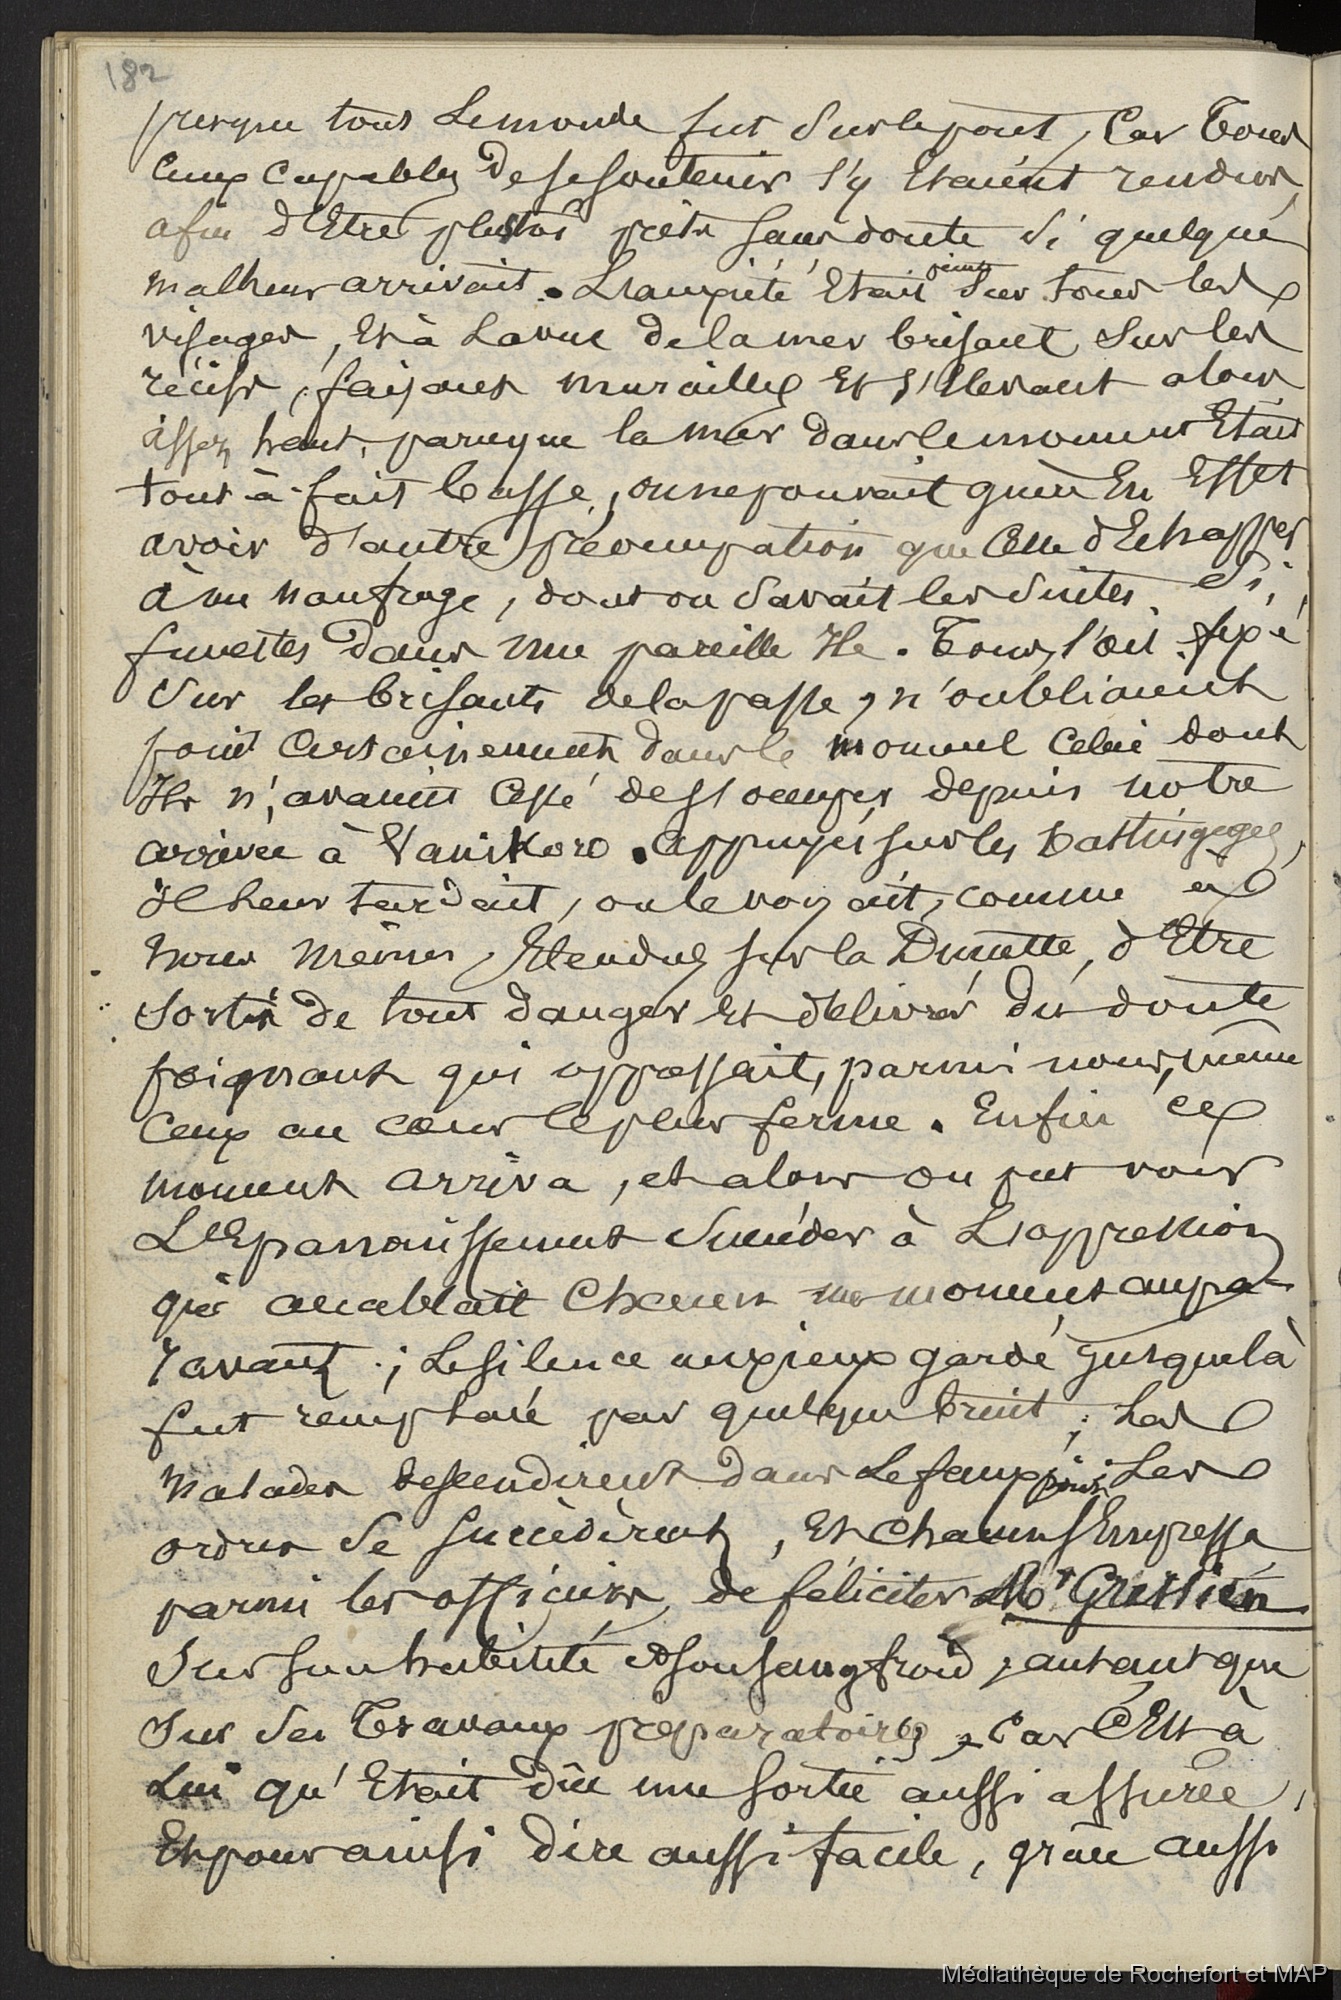 182
presque tout Le monde fut sur le pont, Car Tous
Ceux Capables de se soutenir s'y Etaient rendus,
afin d'Etre plustôt prêts sans doute si quelque
malheur arrivait. L'anxiété Etait peinte sur tous les
visages, Et à La vue de la mer brisant sur les
récifs, faisant murailles Et s'Elevant alors
assez haut, parceque la mer dans le moment Etait
tout-à-fait basse, on ne pouvait guère En Effet
avoir d'autre préocupation que Celle d'Echapper
à un naufrage, dont on savait les suites si
funestes dans une pareille Ile. Tous, l'œil fixé
sur les brisants de la passe, n'oubliaient
point Certainement dans le moment Celui dont
Ils n'avaient Cessé de s'occuper depuis notre
arrivée à Vanikoro. appuyés sur les bastingages,
il leur tardait, on le voyait, comme à
nous mêmes, Etendus sur la Dunette, d'Etre
sortis de tout danger Et délivrés du doute
poignant qui oppressait, parmi nous, même
Ceux au cœur le plus ferme. Enfin ce
moment arriva, et alors on put voir
L'Epanouissement succéder à L'oppression
qui accablait Chacun un moment aupa-
ravant ; Le silence anxieux gardé jusque là
fut remplacé par quelque bruit ; Les
malades descendirent dans Le faux pont ; Les
ordres se succédèrent, Et Chacun s'Empressa
parmi les officiers, de féliciter Mr Gressien
sur son habileté et son sang froid, autant que
sur ses Travaux préparatoires, Car C'Est à
Lui qu'Etait dûe une sortie aussi assurée,
Et pour ainsi dire aussi facile, grâce aussi
Médiathèque de Rochefort et MAP